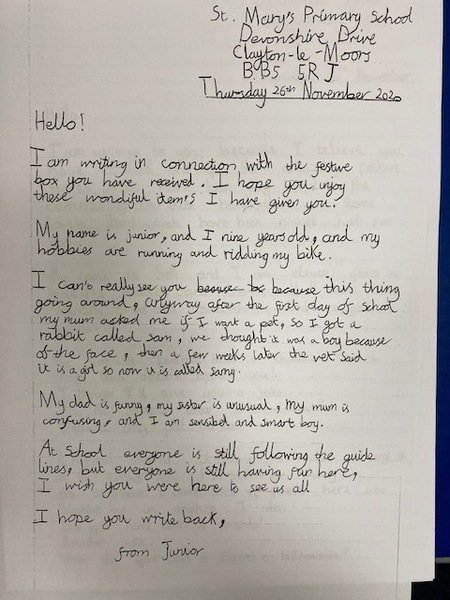 St. Mary's Primary School
Devonshire Drive
Clayton-le-Moors
BB5 5RJ
Thursday 26th November 2020
Hello!
I am writing in connection with the festive
box you have received. I hope you injoy
these wondiful item's I have given you.
My name is junior, and I nine years old, and my
hobbies are running and ridding my bike.
I can't really see you because this thing
going around, anyway after the first day of school
my mum asked me if I want a pet, so I got a
rabbit called sam, we thought it was a boy because
of the face, then a few weeks later the vet said
it is a girl so now it is called samy.
My dad is funny, my sister is unusual, my mum is
confusing, and I am sensibel and smart boy.
At School everyone is still following the guide
lines, but everyone is still having fun here,
I wish you were here to see us all
I hope you write back,
from Junior